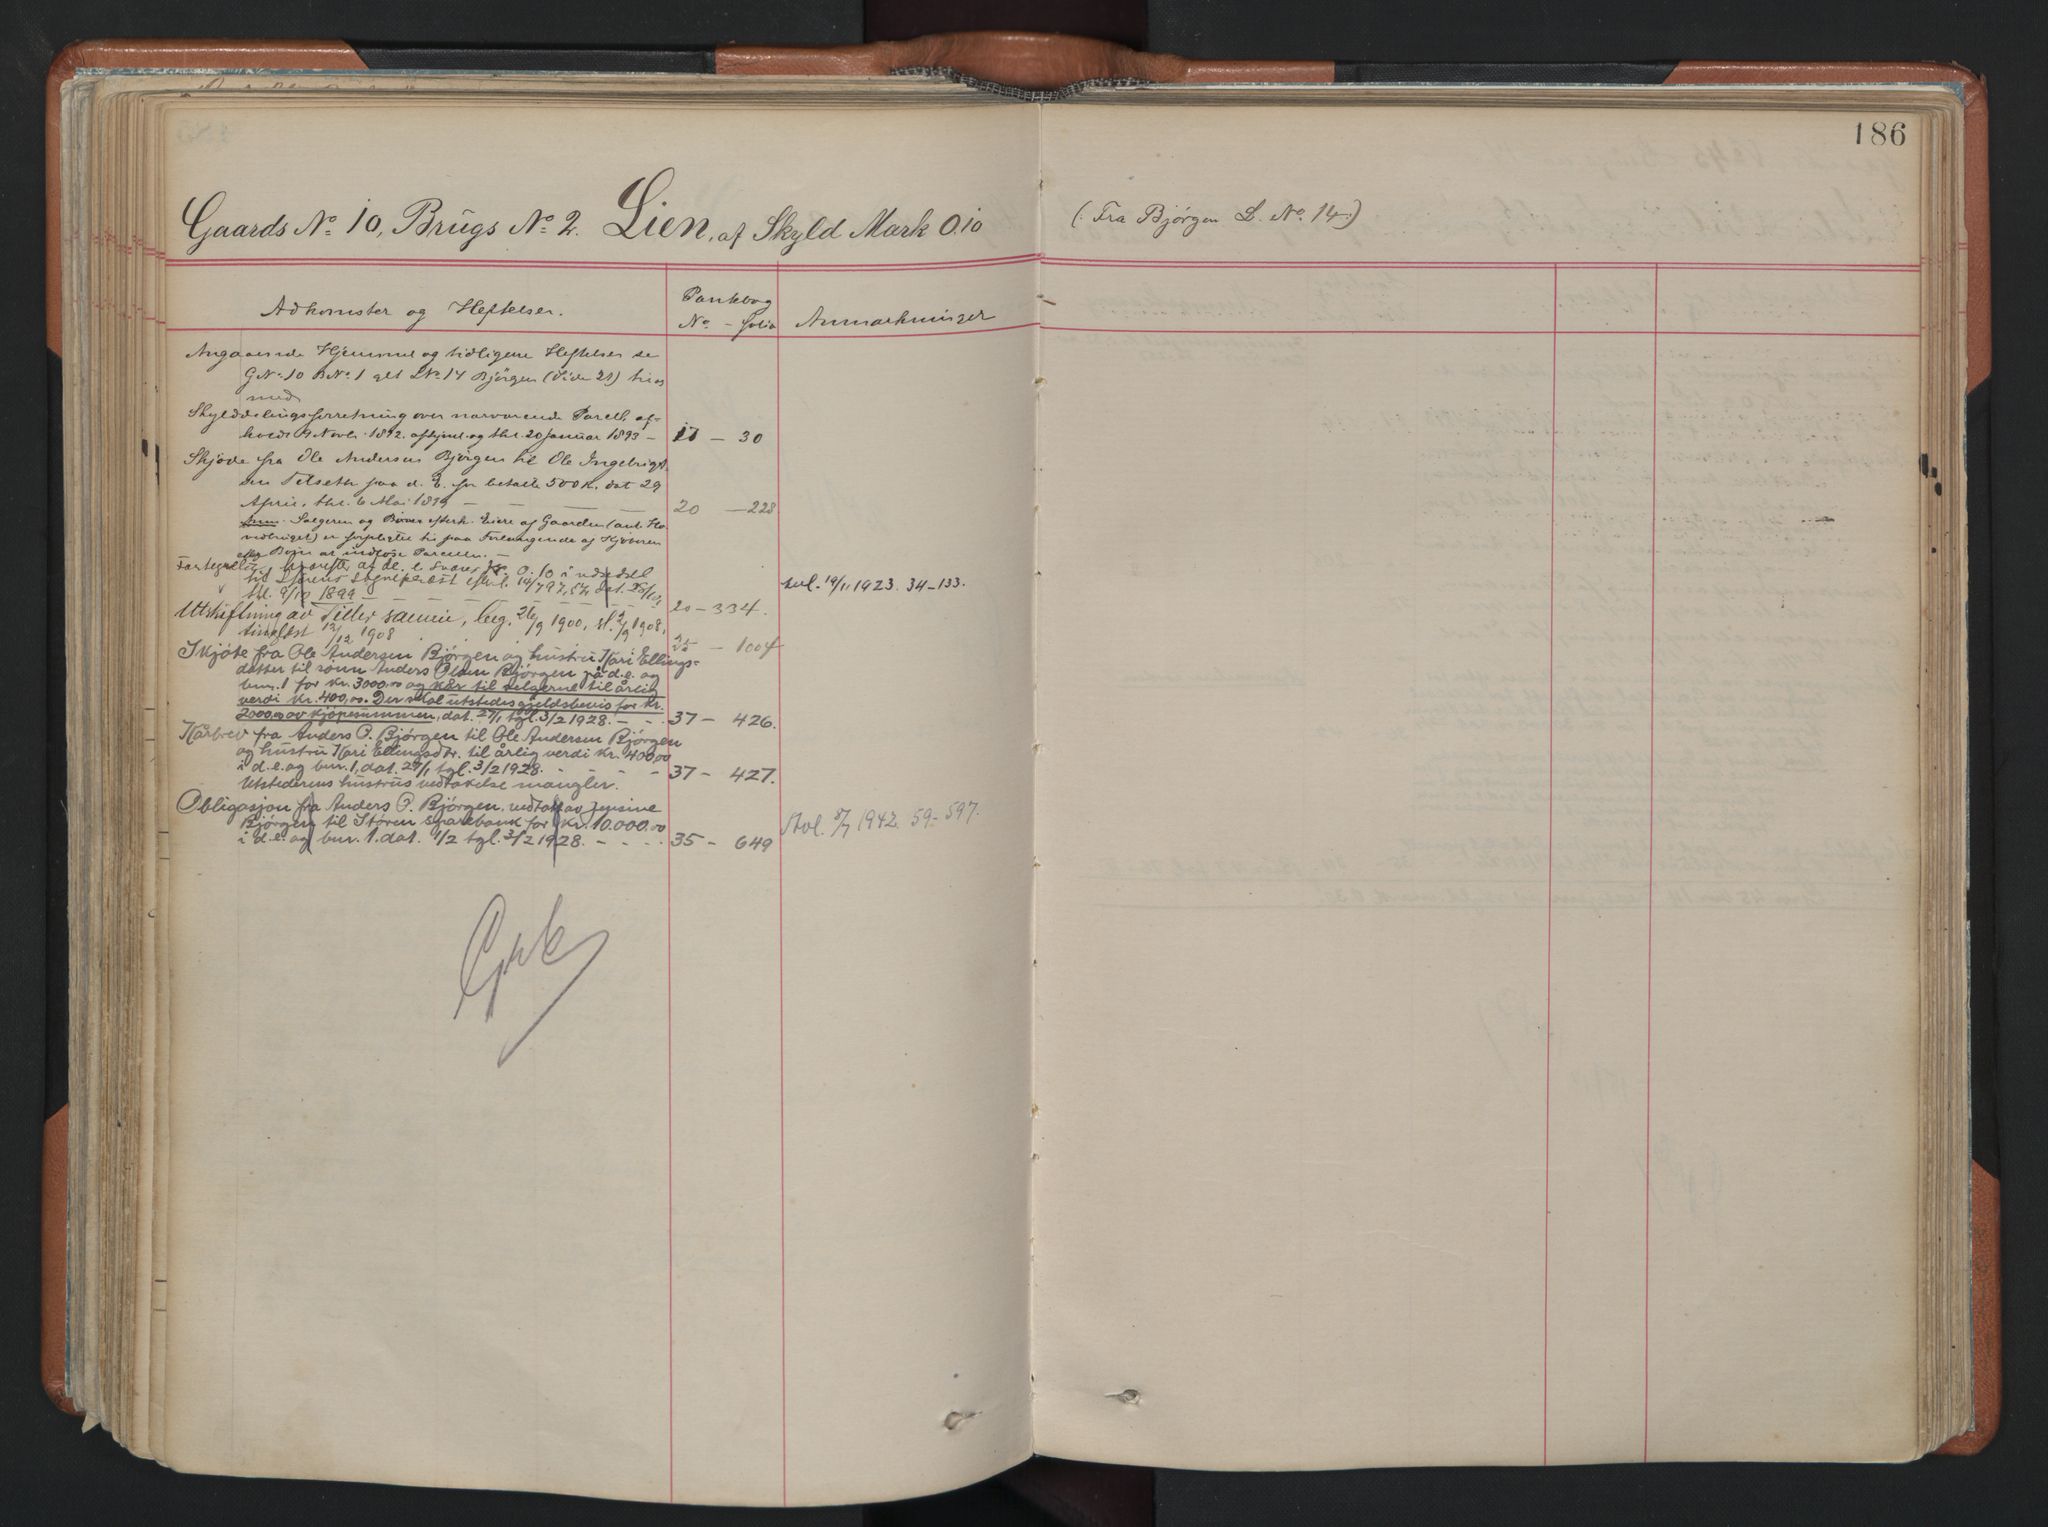 186
Gaards No 10, Brugs No 2. Lien, af Skyld Mark 0.10 (: Fra Bjørgen L. No. 14:)
Adkomster og Heftelser.
Pantebog
No - folio
Anmærkninger
Angaaende Hjemmel og tidligere Heftelser se
GNo 10 BNo 1 LNo 14 Bjørgen (Side 21)
med
Skylddelingsforretning over nærværende Parcel, af-
holdt 9 Novbr. 1892. afhjml. og thl. 20 Januar 1893 — 17 — 30
Skjøde fra Ole Andersen Bjørgen til Ole Ingebrigt-
sen Telseth paa d. E. for betalte 500 K. dat 29
April, thl. 6 Mai 1899 — — — 20 — 228
Anm. Sælgeren og efterk. Eiere af Gaarden (ant. Ho-
vedbruget) er forpligtet til paa Forlangende af Kjøberen
eller at indløse Parcellen. —
Fortegnelse hvorefter af de. e. svares 0.10 i
til Størens Sognepræst 14/7 97, dat. 25/10,
thl. 9/10 1899 — — — 20 — 334.
avl. 19/1, 1923. 34-133.
Utskiftning av Tiller sameie, beg. 26/9 1900, sl. 2/9 1908,
tinglæst 12/12 1908 25 - 1004
Skjøte fra Ole Andersen Bjørgen og hustru Kari Ellings-
datter til sønn Anders Olsen Bjørgen på d.e. og
bnr. 1 for kr. 3000,00 og kår til selgerne til årlig
verdi kr. 400,00. Der skal utstedes gjeldsbevis for kr.
2000,00 av kjøpesummen, dat. 27/1 tgl. 3/2 1928. - - 37 - 426.
Kårbrev fra Anders O. Bjørgen til Ole Andersen Bjørgen
og hustru Kari Ellingsdtr. til årlig verdi kr. 400,00
i d.e. og bnr. 1, dat. 27/1 tgl. 3/2 1928. - - - 37 - 427.
Utstederens hustrus vedtakelse mangler.
Obligasjon fra Anders O. Bjørgen, vedtatt av Jensine
Bjørgen til Støren sparebank for kr. 10.000.00
i d.e. og bnr. 1. dat. 1/2 tgl. 3/2 1928. - - - 35 - 649
Avl. 8/7 1942. 59-597.